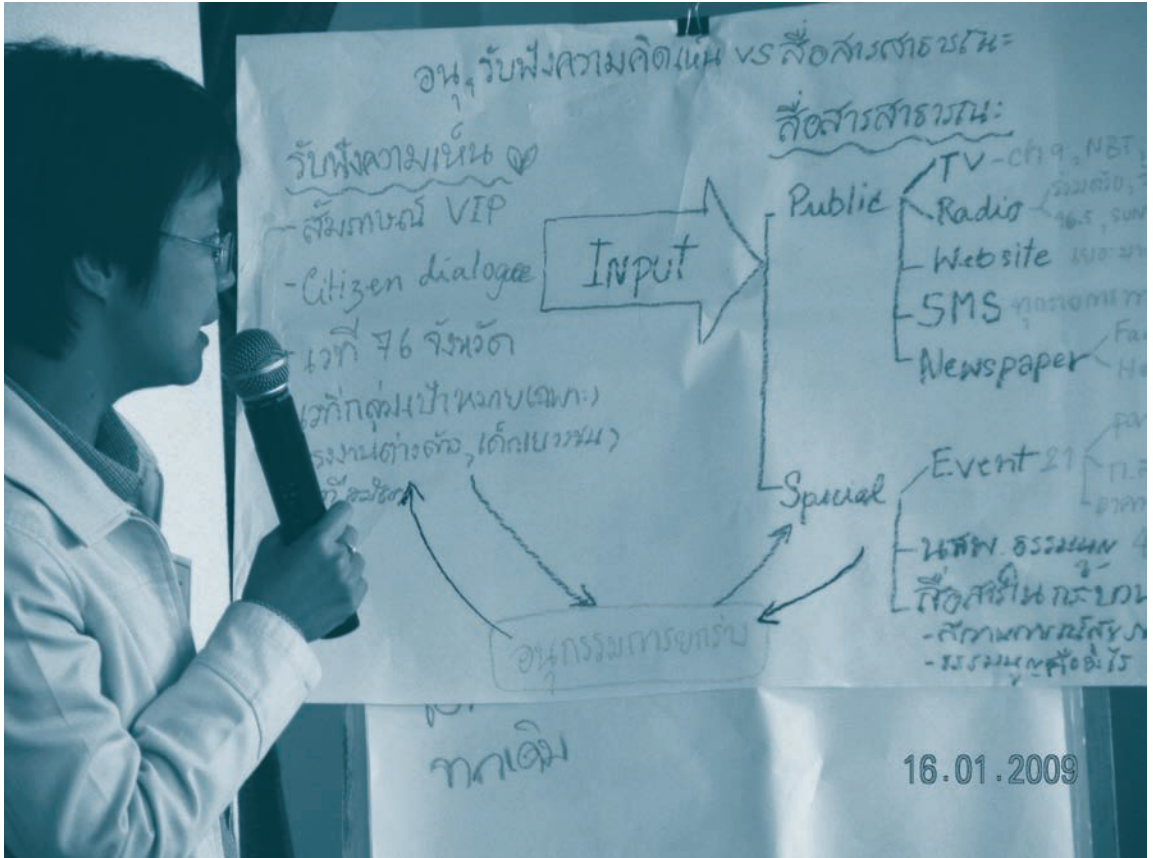 อนุฯ รับฟังความคิดเห็น VS สื่อสารสาธารณะ
รับฟังความเห็น
- สัมภาษณ์ VIP
- Citizen dialogue
- เวที 76 จังหวัด
เวทีกลุ่มเป้าหมายเฉพาะ
แรงงานต่างด้าว, เด็กเยาวชน)
INPUT
สื่อสารสาธารณะ
Public
TV - ch.9, NBT,
Radio
96.5, SUN
- Website
- SMS
- Newspaper
Special
Event 21
- นสพ. ธรรมนูญ
สื่อสารในกระบวน
- ธรรมนูญคืออะไร
อนุกรรมการยกร่าง
16.01.2009